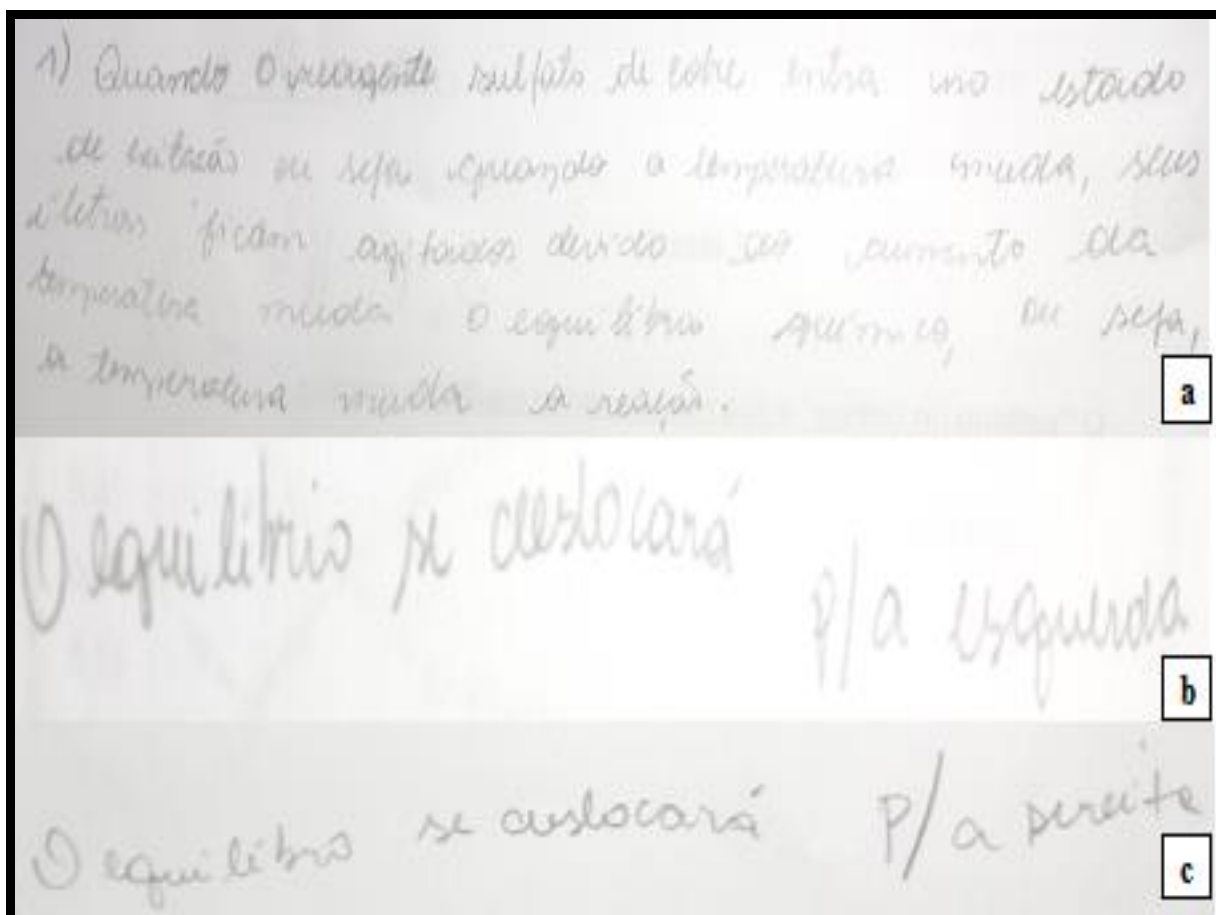 1) Quando o reagente sulfato de cobre entra no estado
de exitação ou seja quando a temperatura muda, seus
eletrons ficam agitados devido ao aumento da
temperatura muda o equilíbrio químico, ou seja,
a temperatura muda a reação.
a
O equilibrio se deslocará
p/ a esquerda
b
O equilibrio se deslocará p/ a
c